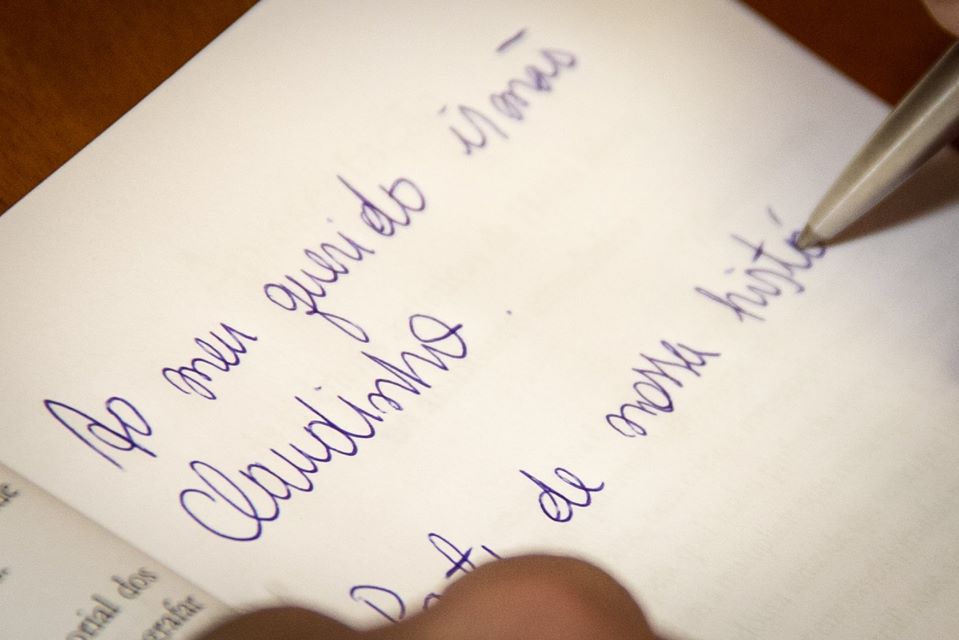 Ao meu querido irmão
Claudinho.
de nossa histó
de
orial dos
grafar